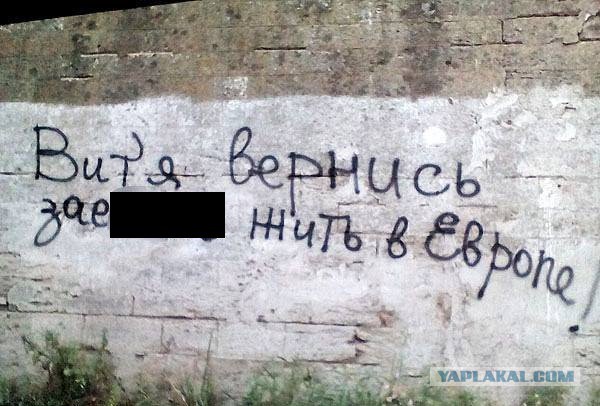 Вит'я вернись
зае жить в Европе!
YAPLAKAL.COM